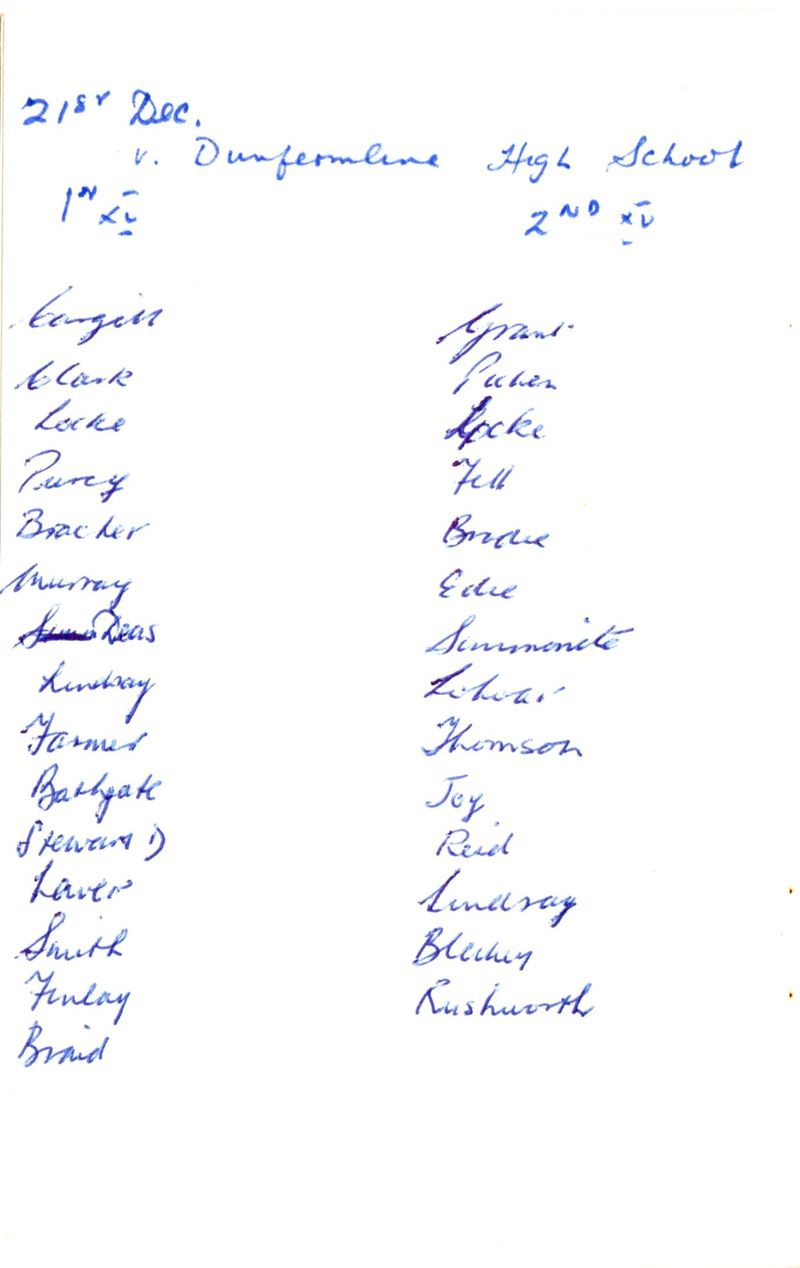 21st Dec.
v. Dunfermline High School
1st XV
2ND XV
Cargill
Clark
Locke
Purcy
Bracher
Murray
Deas
Lindsay
Farmer
Bathgate
Stewart D
Laver
Smith
Finlay
Braid
Grant
Locke
Fell
Brodie
Edie
Simmonite
Lohoar
Thomson
Joy
Reid
Lindsay
Rushworth